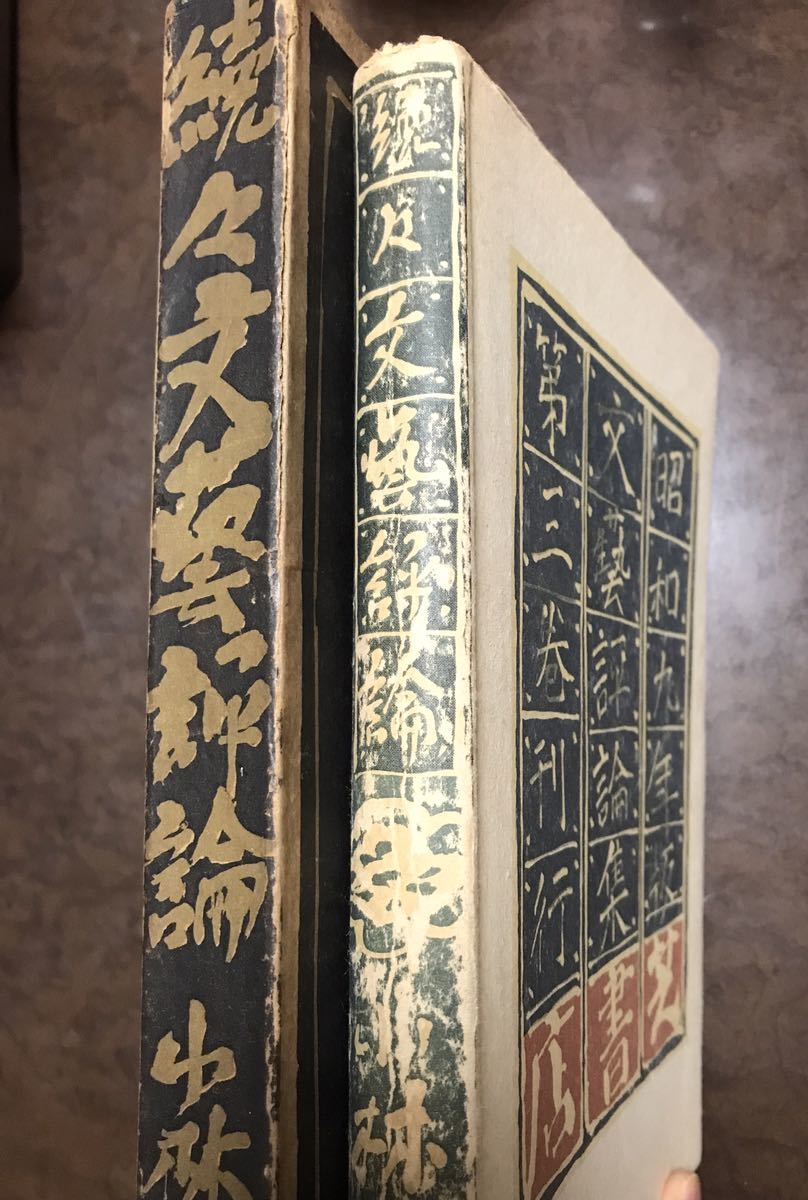 続々文藝評論 小林
続々文藝評論 小林
昭和九年版
文藝評論集
第三卷刊行
芝書店